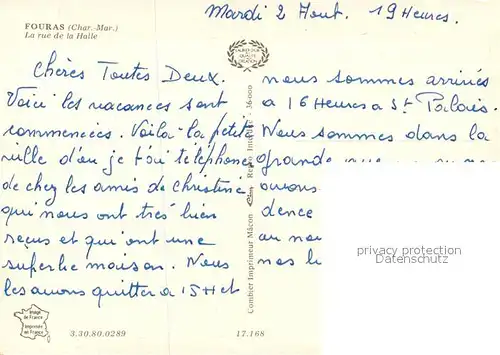 FOURAS (Char.-Mar.)
La rue de la Halle
Mardi 2 Aout. 19 Heures.
Chères Toutes Deux.
Voici les vacances sont
commencées. Voila la petite
ville d'ou je t'ai téléphoné
de chez les amis de Christine
qui nous ont très bien
reçus et qui ont une
superbe maison. Nous
les avons quitter a 15H et
nous sommes arrivés
a 16 Heures a St Palais.
Nous sommes dans la
grande
avons
dence
au
nos
Combier Imprimeur Mâcon
36-000
privacy protection
Datenschutz
Image
de France
Imprimée
en France
3.30.80.0289
17.168